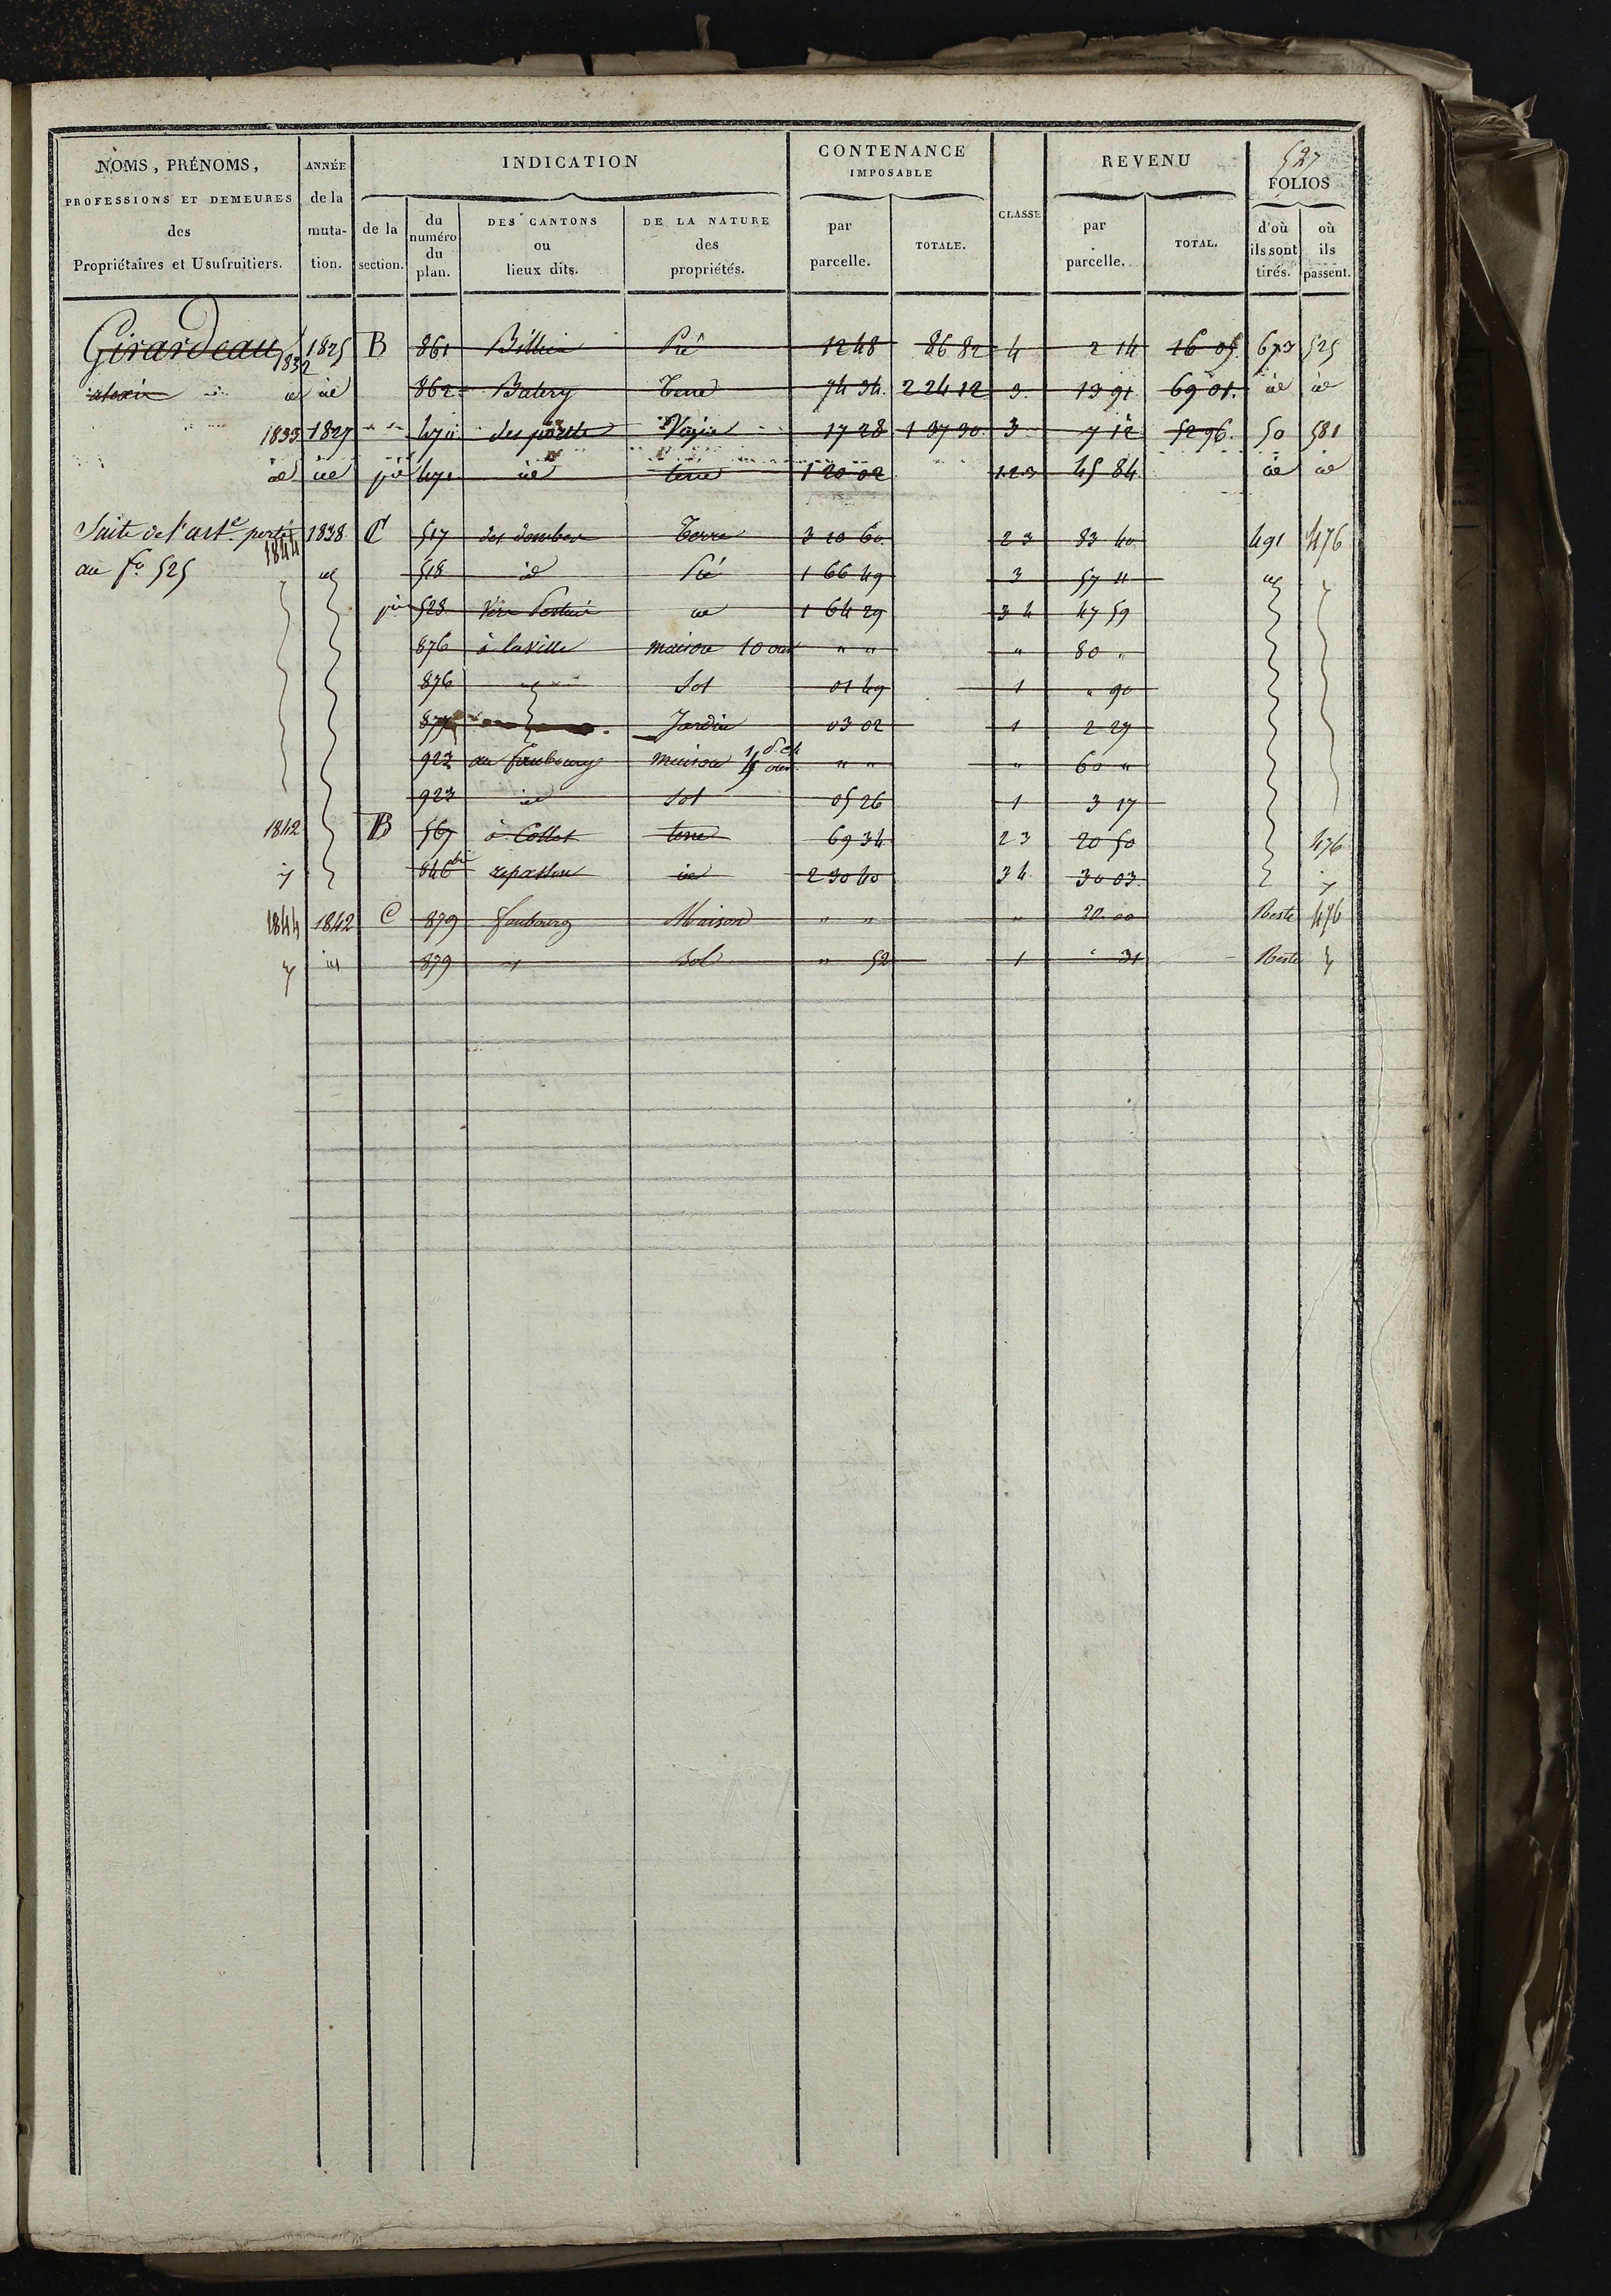 527
NOMS, PRÉNOMS, PROFESSIONS ET DEMEURES des Propriétaires et Usufruitiers.
ANNÉE de la muta- tion.
INDICATION
de la section.
du numéro du plan.
DES CANTONS ou lieux dits.
DE LA NATURE des propriétés.
CONTENANCE IMPOSABLE
par parcelle.
TOTALE.
CLASSE
REVENU
par parcelle.
TOTAL.
FOLIOS
d'où ils sont tirés.
où ils passent.
Girardeau 1832 1825 B 861 Pré 12 48 86 82 4 2 14 16 05 673 525
alexis id id 862 Batery Terre 74 34 2 24 12 3 13 91 69 01 id id
1833 1827 470 des 17 28 1 37 30 3 7 12 52 96 50 581
id id pie 471 id terre 1 20 02 1.2.3 45 84 id id
Suite de l'art.e porté 1844 1838 C 517 des Terre 3 10 60 2 3 83 40 491 476
au fo 525 id 518 id Pré 1 66 49 3 57 11 id
pie 523 id 1 64 29 3 4 47 59
876 à la ville maison 10 ouv " " " 80 "
876 Sol 01 49 1 " 90
877 Jardin 03 02 1 2 27
923 au faubourg maison " " " 60 "
923 id Sol 05 26 1 3 17
1842 B 567 à Collet terre 69 34 2 3 20 50 476
846 bis id 2 30 40 3 4 30 03
1844 1842 C 879 faubourg Maison " " " 20.00 Reste 476
id 879 Sol " 52 1 " 31 Reste